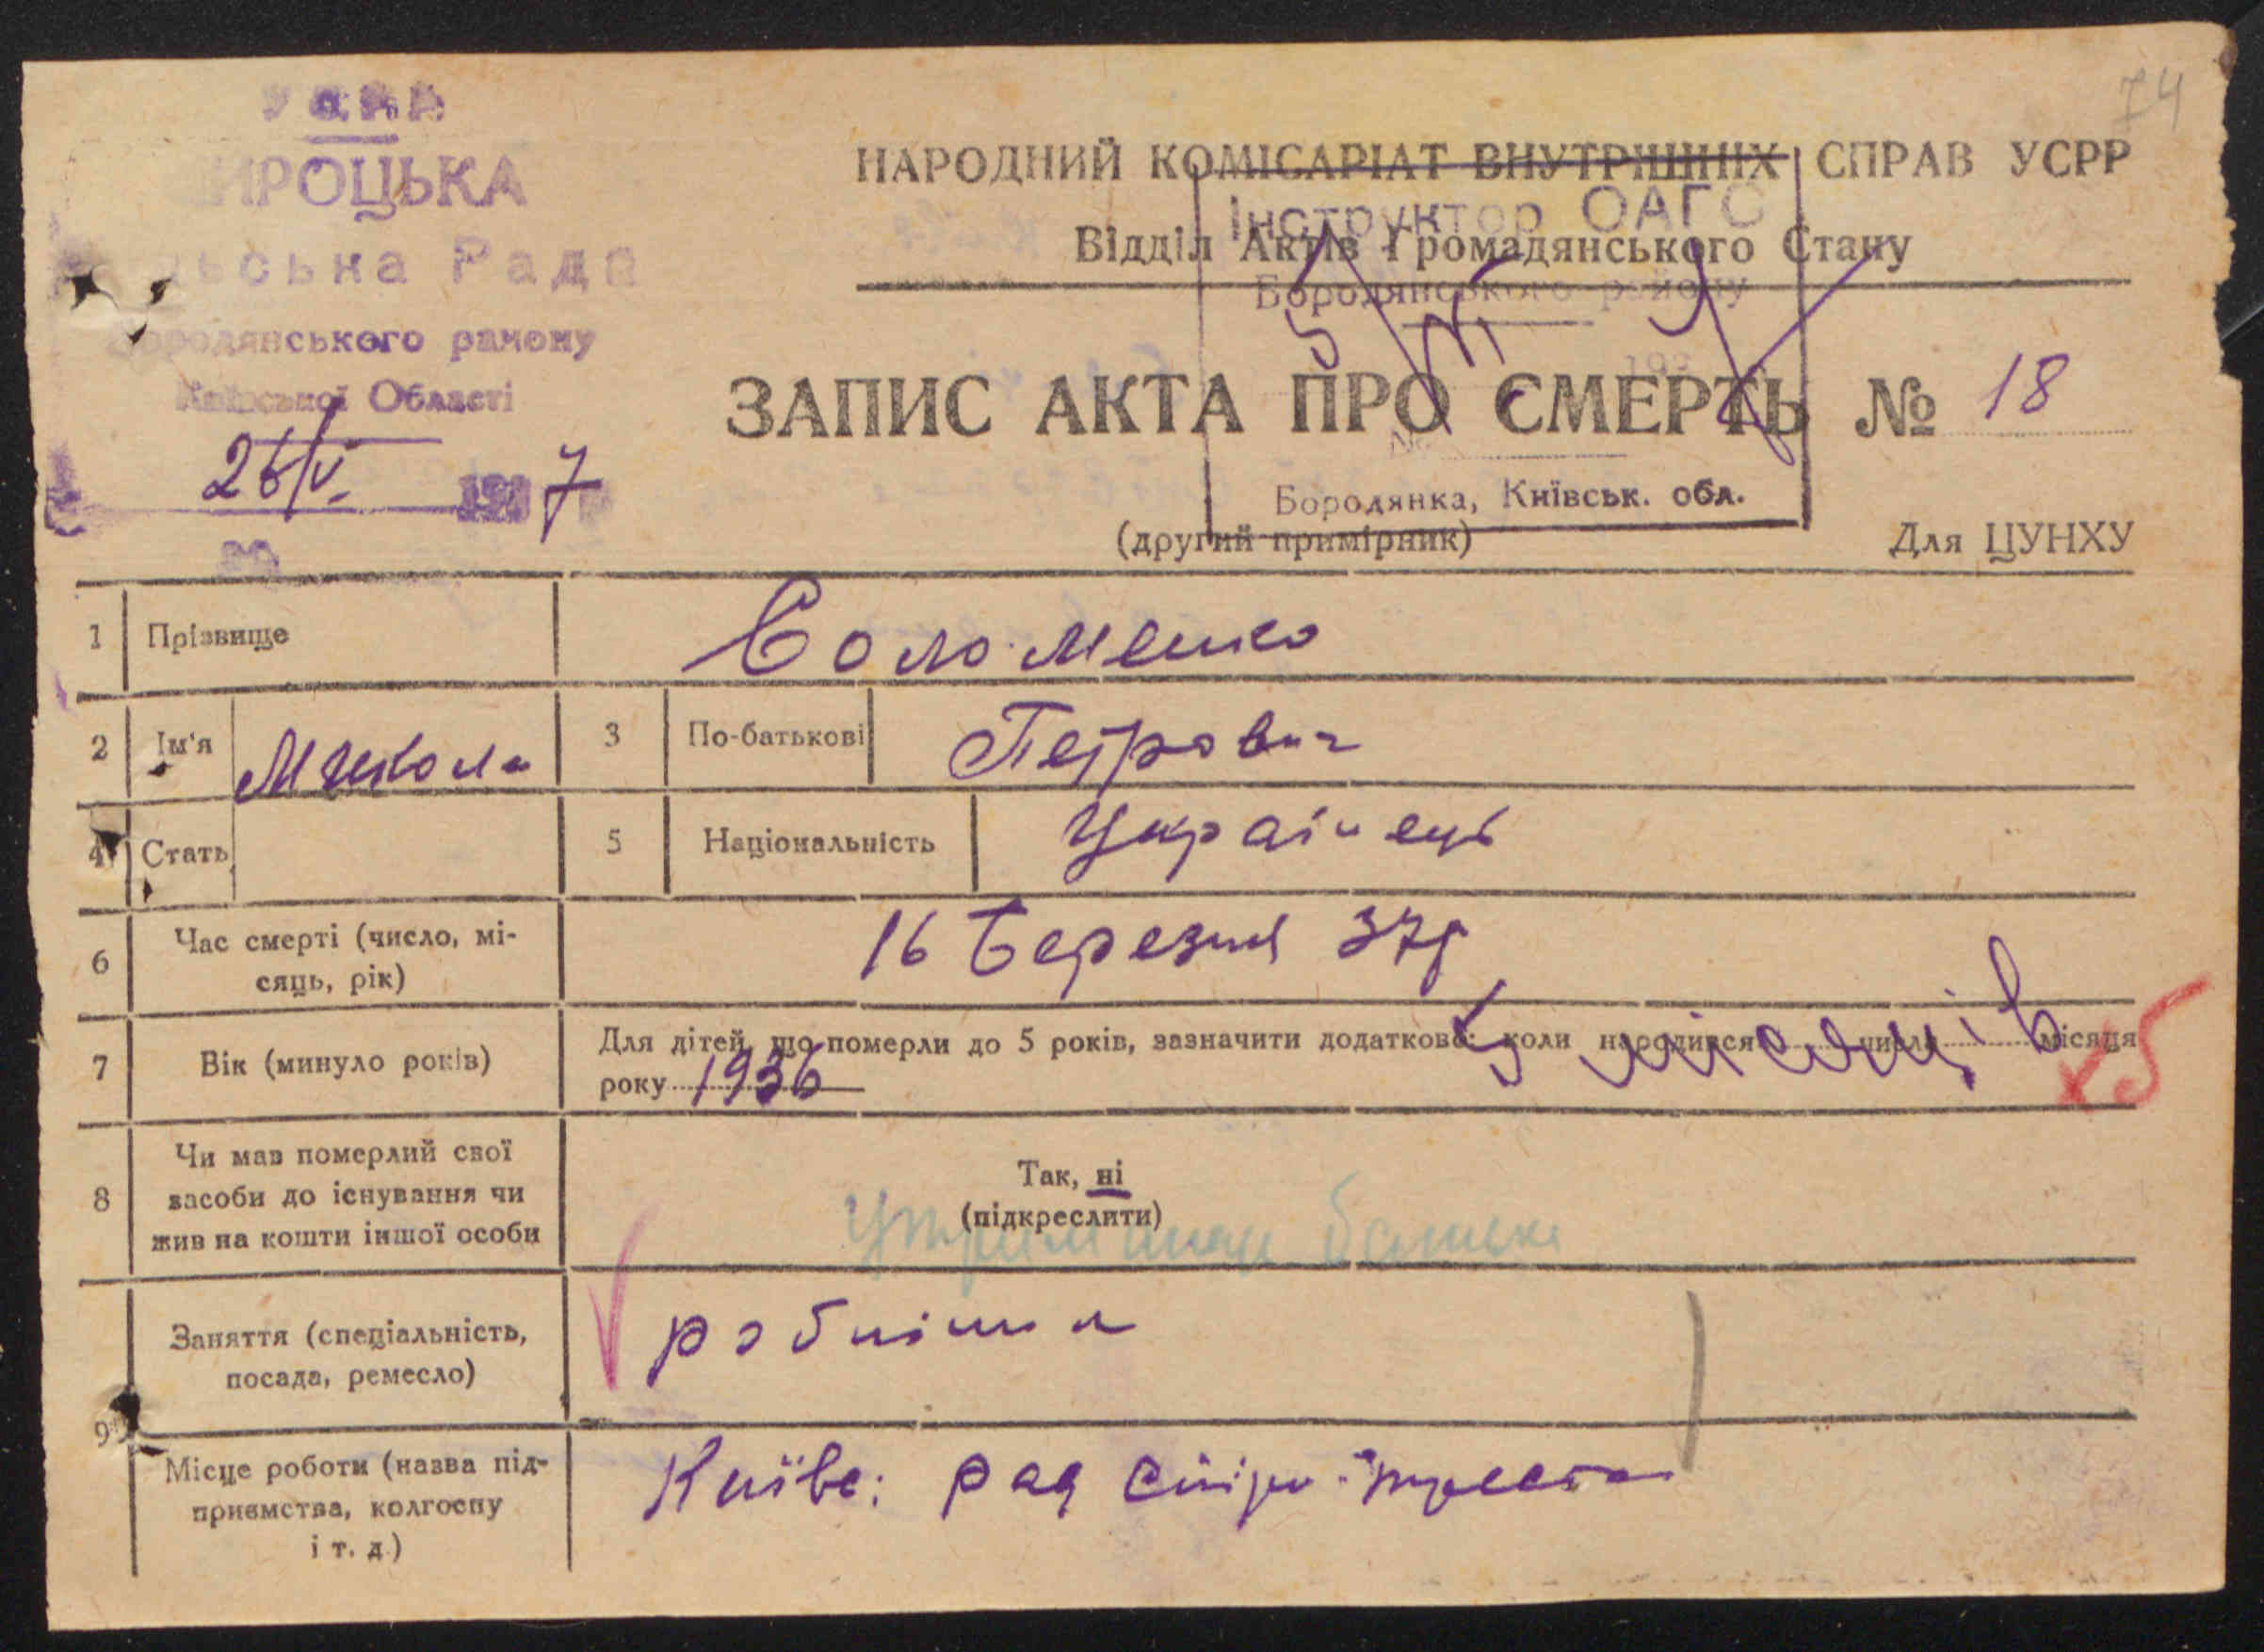 74
УСРР
МИРОЦЬКА
сільська Рада
Бородянського району
Київської Області
26/V 1937
НАРОДНИЙ КОМІСАРІАТ ВНУТРІШНІХ СПРАВ УСРР
Відділ Актів Громадянського Стану
Інструктор ОАГС
Бородянського району
193
№
Бородянка, Київськ. обл.
ЗАПИС АКТА ПРО СМЕРТЬ № 18
(другий примірник)
Для ЦУНХУ
1 Прізвище Соломенко
2 Ім'я Микола 3 По-батькові Петрович
4 Стать 5 Національність Українець
6 Час смерті (число, мі-
сяць, рік) 16 Березня 37р
7 Вік (минуло років) Для дітей, що померли до 5 років, зазначити додатково: коли народився числа місяця
5 місяців
року 1936
х5
8 Чи мав померлий свої
засоби до існування чи
жив на кошти іншої особи
Так, ні
(підкреслити)
батька
9 Заняття (спеціальність,
посада, ремесло)
Місце роботи (назва під-
приємства, колгоспу
і т. д.)
Київс: рад